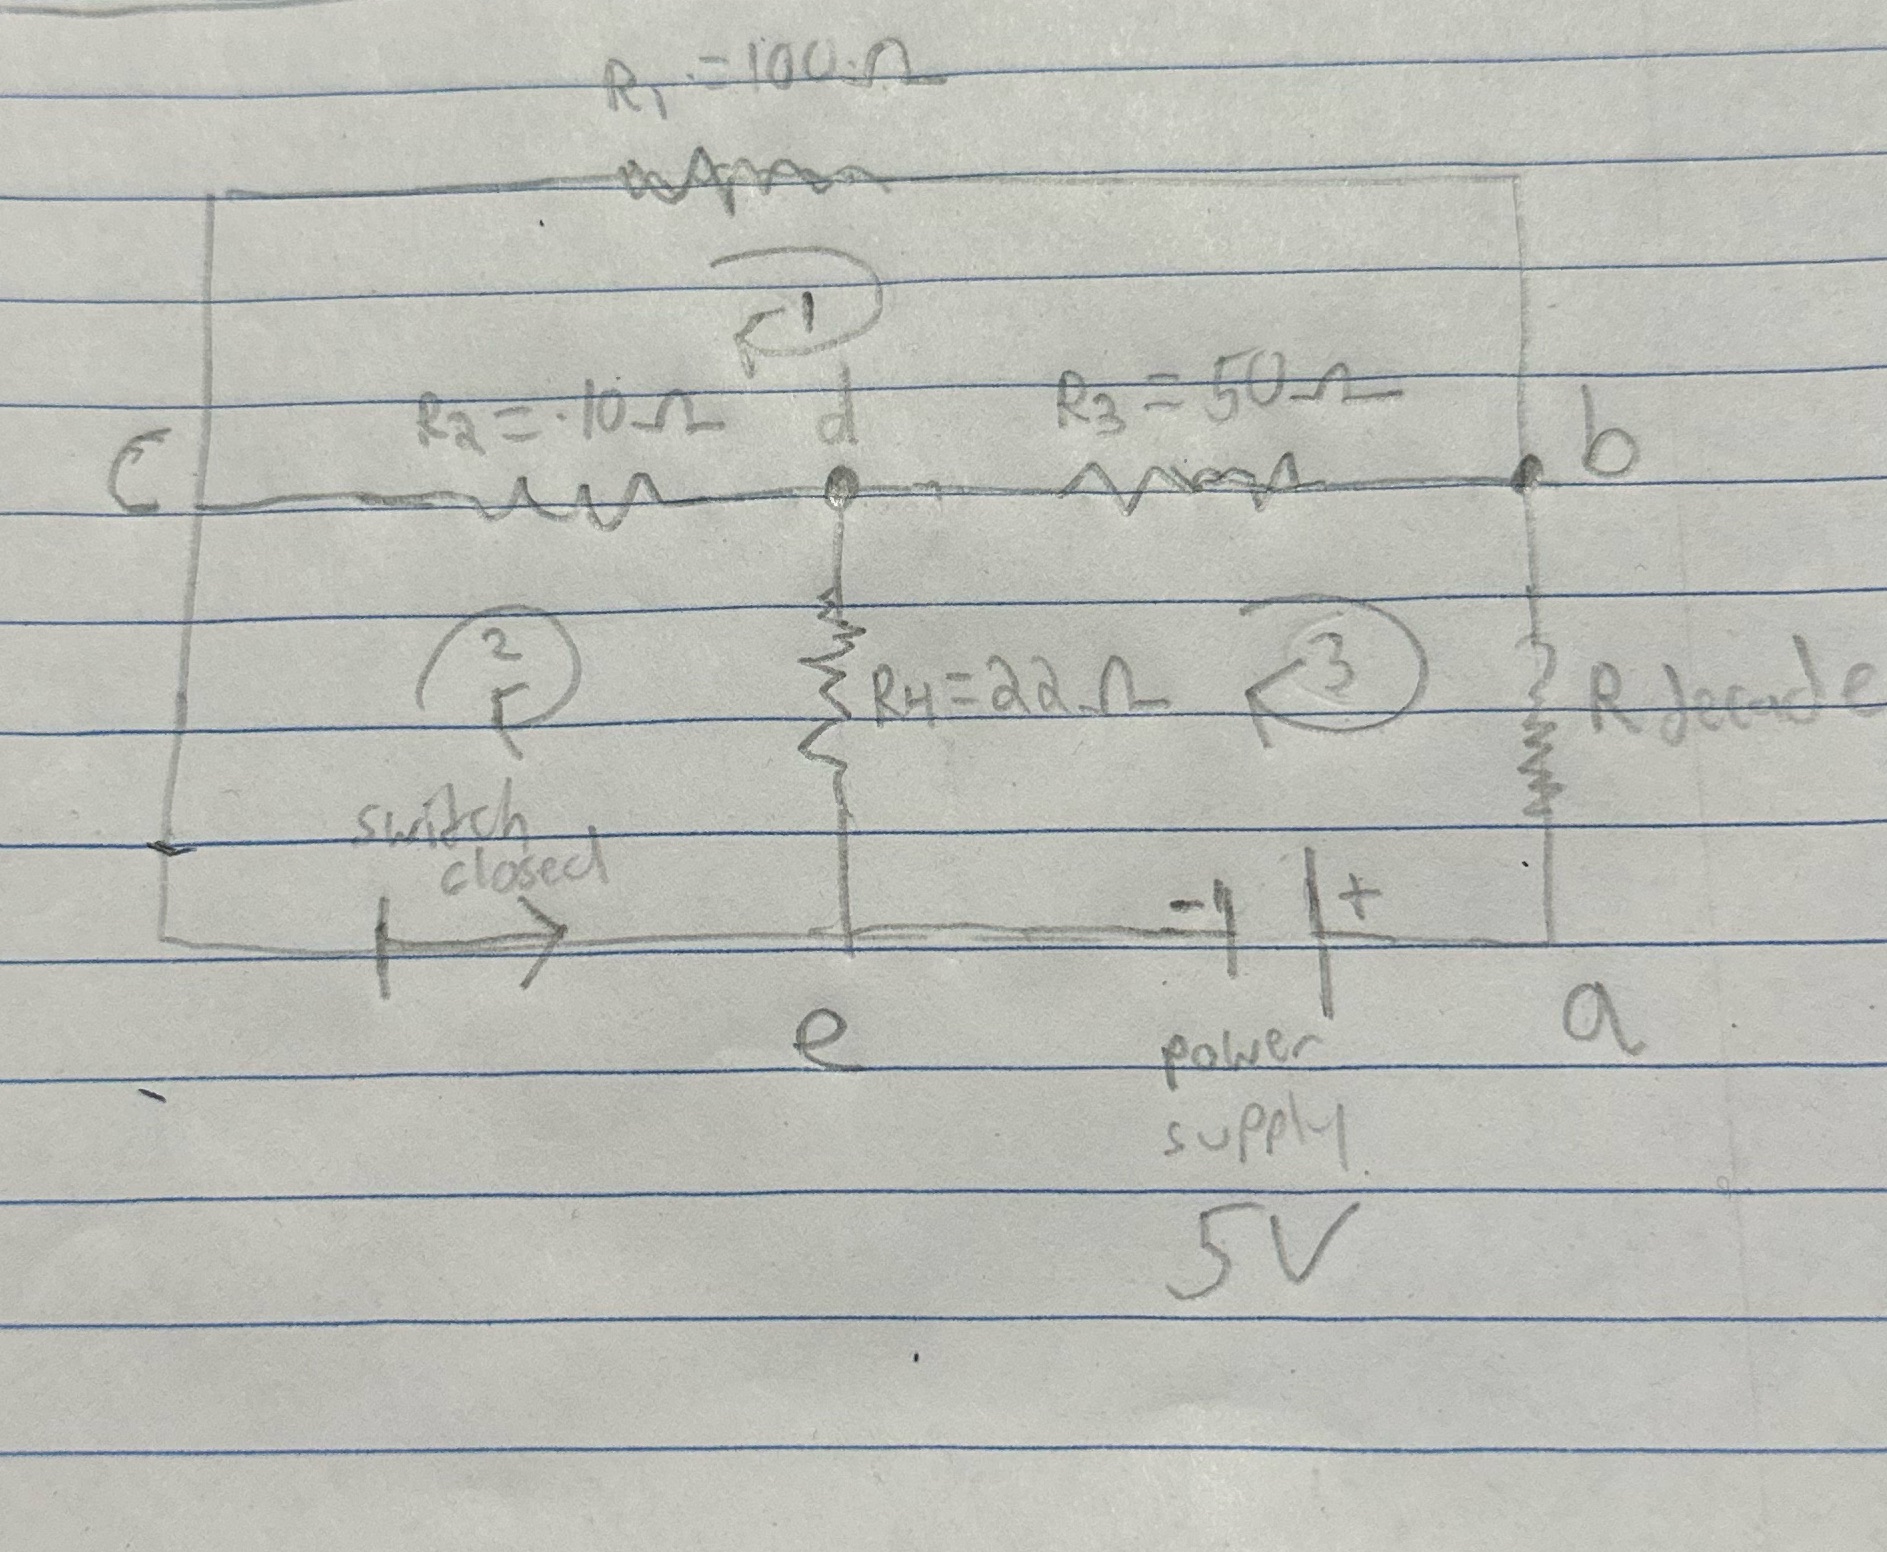 R1 = 100Ω
1
R2 = 10Ω
d
R3 = 50Ω
C
b
2
R4 = 22Ω
3
R decade
switch
closed
- +
e
a
power
supply
5V